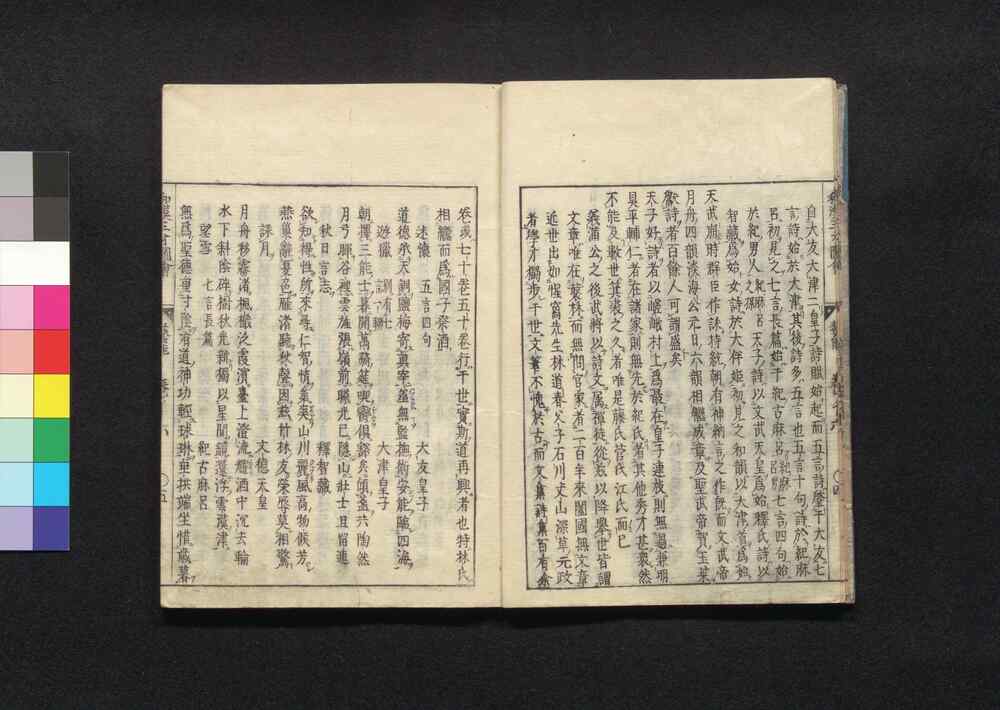 自大友大津二皇子詩賦始起而五言詩肇于大友七
言詩始於大津其後詩多五言也五言十句詩於紀麻
呂初見之七言長篇始于紀古麻呂七言四句始
於紀男人
智藏爲始女詩於大伴姫初見之和韻以大津首爲始
天武崩時群臣作誄持統朝有神納言之作既而文武帝
月舟四韻淡海公元日六韻相繼成章及聖武帝賀玉棗
獻詩者百餘人可謂盛矣
天子好詩者以嵯峨村上爲最在皇子連枝則無過兼明
具平輔仁者在諸家則無先於紀氏者其他秀才甚衆然
不能及數世箕裘之久者唯是藤氏菅氏江氏而已
義滿公之後武將以詩文属禅徒從茲以降擧世皆謂
文章唯在叢林而無問官家者二百年來闔國無文章
近世出如惺窩先生林道春父子石川丈山深草元政
者學才獨歩于世文筆不愧於古而文集詩集百有餘
卷或七十卷五十卷行于世實斯道再興者也特林氏
相繼而爲國子祭酒
述懷 五言四句 大友皇子
道德承天訓鹽梅寄眞宰羞無監撫術安能臨四海
遊獵 大津皇子
朝擇三能士暮開萬騎筵喫臠俱豁矣傾盞共陶然
月弓暉谷裡雲旌張嶺前曦光已隱山壯士且留連
秋日言志 釋智藏
欲知得性所來尋仁智情氣爽山川麗風高物候芳
燕巣辭夏色雁渚聽秋聲因茲竹林友榮辱莫相驚
詠月 文德天皇
月舟移霧渚楓檝泛霞濱臺上澄流耀酒中沉去輪
水下斜陰碎樹秋光新獨以星間鏡還浮雲漢津
望雪 七言長篇 紀古麻呂
無爲聖德重寸陰有道神功輕球琳垂拱端坐惜歲暮